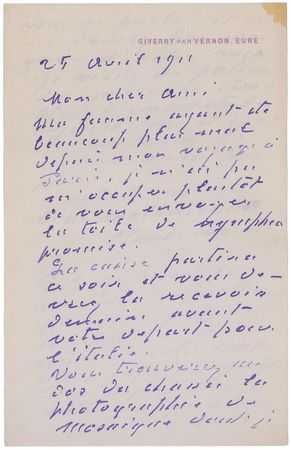 GIVERNY PAR VERNON. EURE
25 avril 1911
Mon cher Ami
Ma femme ayant été
beaucoup plus mal
depuis mon voyage à
Paris, je n'ai pu
m'occuper plutôt
de vous envoyer
la toile de nymphea
promise.
La caisse partira
ce soir et vous de-
vrez la recevoir
demain avant
votre départ pour
l'Italie.
Vous trouverez au
dos du chassis la
photographie de
mosaïque dont j